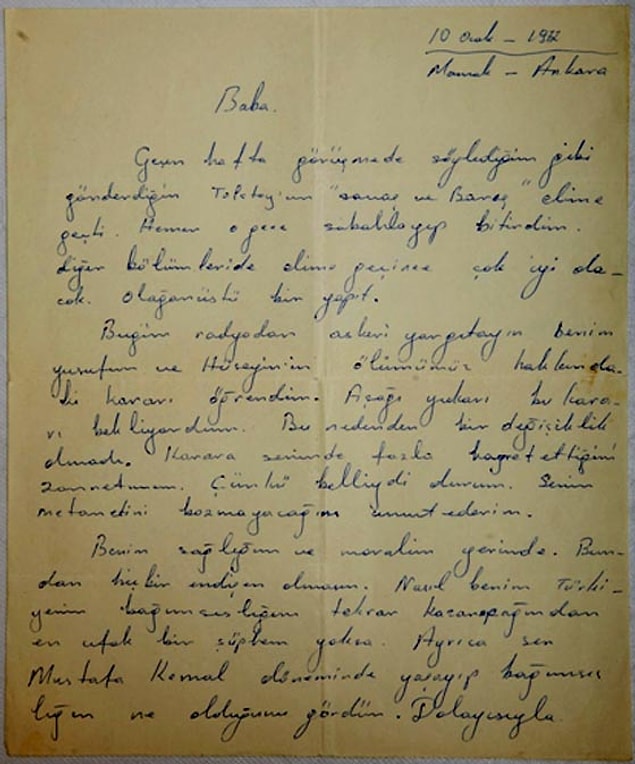 10 Ocak - 1972
Mamak - Ankara
Baba.
Geçen hafta görüşmede söylediğim gibi
gönderdiğin Tolstoy'un "savaş ve Barış" elime
geçti. Hemen o gece sabahlayıp bitirdim.
diğer bölümleride elime geçince çok iyi ola-
cak. Olağanüstü bir yapıt.
Bugün radyodan askeri yargıtayın benim
yusufun ve Hüseyin'in ölümümüz hakkında-
ki kararı öğrendim. Aşağı yukarı bu kara-
rı bekliyordum. Bu nedenden bir değişiklik
olmadı. Karara seninde fazla hayret ettiğini
zannetmem. Çünkü belliydi durum. Senin
metanetini bozmayacağını ümut ederim.
Benim sağlığım ve moralim yerinde. Bun-
dan hiçbir endişen olmasın. Nasıl benim Türki-
yenin bağımsızlığını tekrar kazanacağından
en ufak bir şüphem yoksa. Ayrıca sen
Mustafa Kemal döneminde yaşayıp bağımsız
lığın ne olduğunu gördün. Dolayısıyla